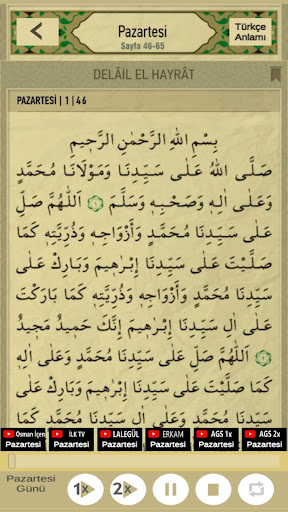 Pazartesi
Sayfa 46-65
Türkçe
Anlamı
DELÂİL EL HAYRÂT
PAZARTESİ | 1 | 46
بِسْمِ اللهِ الرَّحْمٰنِ الرَّحِيمِ
صَلَّى اللهُ عَلٰى سَيِّدِنَا وَمَوْلَانَا مُحَمَّدٍ
وَعَلٰى اٰلِهٖ وَصَحْبِهٖ وَسَلَّمَ ۝١ اَللّٰهُمَّ صَلِّ
عَلٰى سَيِّدِنَا مُحَمَّدٍ وَأَزْوَاجِهٖ وَذُرِّيَّتِهٖ كَمَا
صَلَّيْتَ عَلٰى سَيِّدِنَا إِبْرٰهِيمَ وَبَارِكْ عَلٰى
سَيِّدِنَا مُحَمَّدٍ وَأَزْوَاجِهٖ وَذُرِّيَّتِهٖ كَمَا بَارَكْتَ
عَلٰى اٰلِ سَيِّدِنَا إِبْرٰهِيمَ إِنَّكَ حَمِيدٌ مَجِيدٌ
۝٢ اَللّٰهُمَّ صَلِّ عَلٰى سَيِّدِنَا مُحَمَّدٍ وَعَلٰى اٰلِهٖ
كَمَا صَلَّيْتَ عَلٰى سَيِّدِنَا إِبْرٰهِيمَ وَبَارِكْ عَلٰى
Osman İçen İLK TV LALEGÜL ERKAM AGS 1x AGS 2x
Pazartesi Pazartesi Pazartesi Pazartesi Pazartesi Pazartesi
Pazartesi
Günü
1x 2x